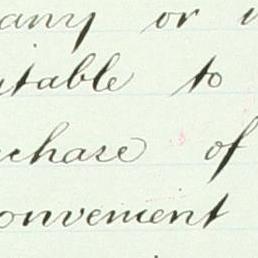 any or
itable to
chase of
onvenient